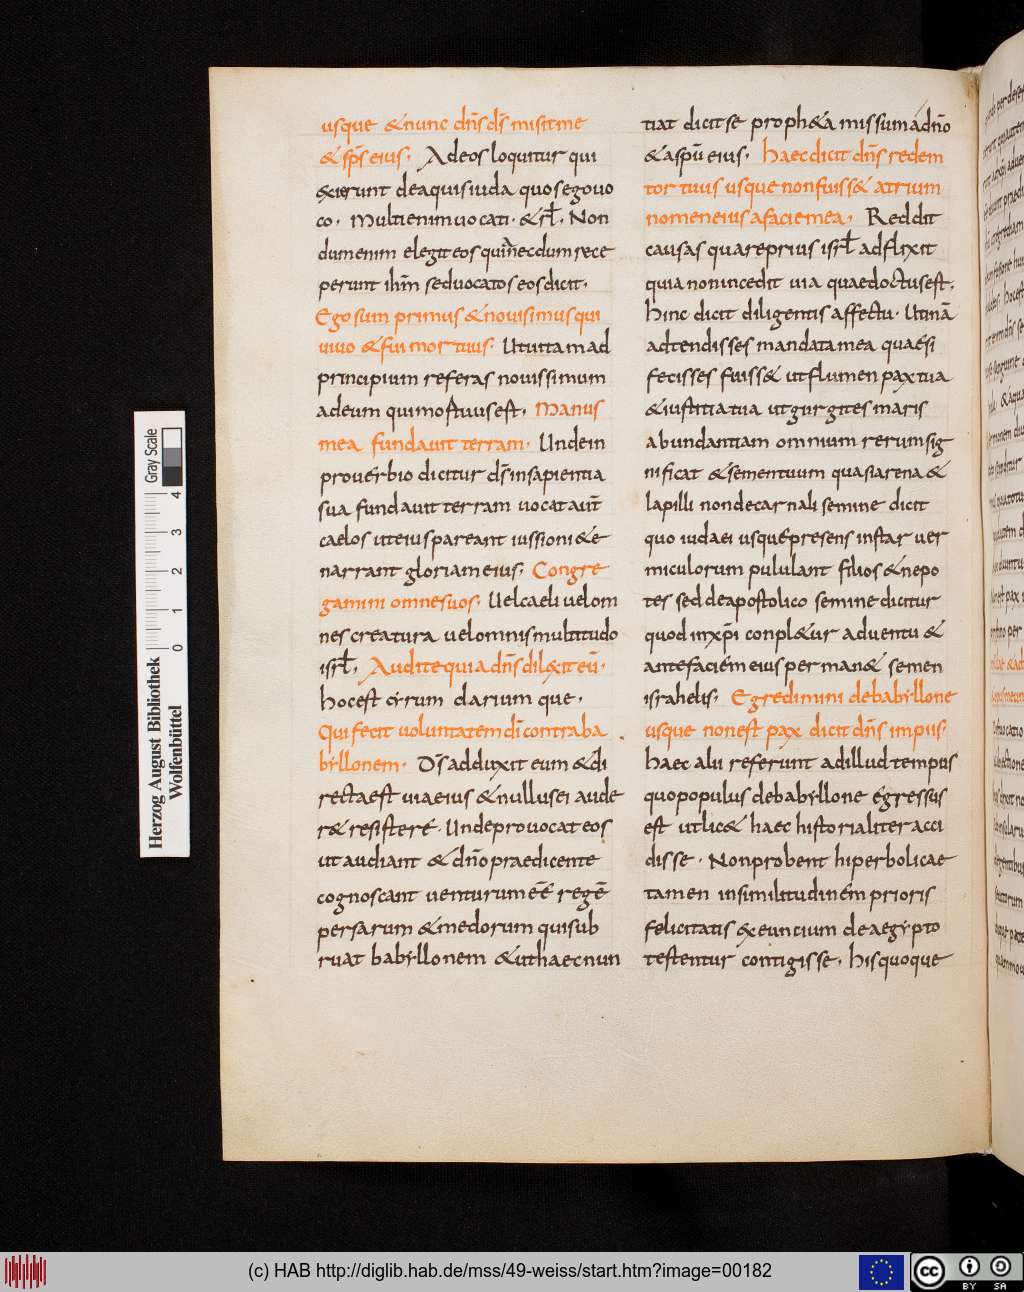 usque &nunc dn̄s ds̄ misit me
&sp̄s eius. Adeos loquitur qui
exierunt deaquis iuda quos ego uo
co. Multi enim uocati. &rl̄. Non
dum enim elegit eos qui necdum rece
perunt ihm̄ sed uocatos eos dicit.
Ego sum primus & nouisimus qui
uiuo & fui mortuus. Ut uitam ad
principium referas nouissimum
adeum qui mortuus est. Manus
mea fundauit terram. Unde in
prouerbio dicitur ds̄ in sapientia
sua fundauit terram uocat aut̄
caelos ut eius pareant iussioni &e
narrant gloriam eius. Congre
gamini omnes uos. Uel caeli uel om
nes creatura uel omnis multitudo
isrl̄. Audite quia dn̄s dilexit eū.
hoc est cyrum darium que.
Qui fecit uoluntatem dī contra ba
byllonem. Ds̄ adduxit eum & dī
recta est uia eius & nullus ei aude
r& resistere. Unde prouocat eos
ut audiant & dn̄o praedicente
cognoscant uenturum eē regē
persarum & medorum qui sub
ruat babyllonem & ut haec nun
tiat dicit se proph&a missum a dn̄o
& a spū eius. Haec dicit dn̄s redem
tor tuus usque non fuiss& atrium
nomen eius a facie mea. Reddit
causas quare prius isrl̄ adflixit
quia non incedit uia qua edoctus est.
hinc dicit diligentis affectu. Utinā
adtendisses mandata mea quaesi
fecisses fuiss& ut flumen pax tua
& iustitia tua ut gurgites maris
abundantiam omnium rerum sig
nificat & sementuum quasi arena &
lapilli non de carnali semine dicit
quo iudaei usque presens instar uer
miculorum pululant filios & nepo
tes sed de apostolico semine dicitur
quod in xpī conpl&ur aduentu &
ante faciem eius perman& semen
israhelis. Egredimini de babyllone
usque non est pax dicit dn̄s impiis.
haec alii referunt ad illud tempus
quo populus de babyllone egressus
est ut lic& haec historialiter acci
disse. Non probent hiperbolicae
tamen in similitudinem prioris
felicitatis exeuncium de aegypto
testentur contigisse. his quoque
Herzog August Bibliothek
Wolfenbüttel
Gray Scale
0 1 2 3 4
(c) HAB http://diglib.hab.de/mss/49-weiss/start.htm?image=00182
cc BY SA